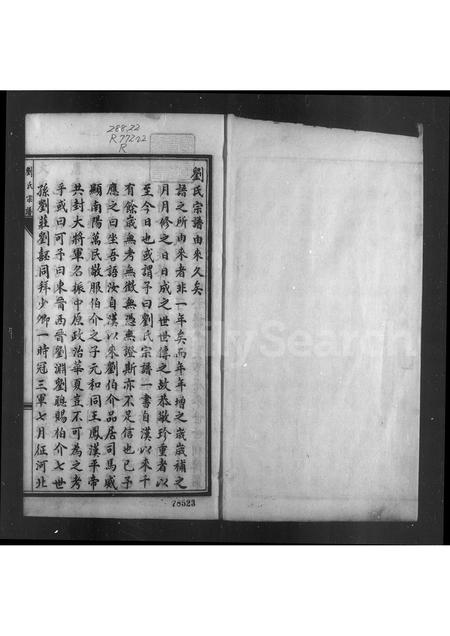 288.22
R772n2
R
劉氏宗譜由來久矣
譜之所由來者非一年矣而年年增之歲歲補之
月月修之日日成之世世傳之故恭敬珍重者以
至今日也或謂予曰劉氏宗譜一書自漢以來千
有餘歲無考無徵無憑無證斯亦不足信也已予
應之曰坐吾語汝自漢以來劉伯介品居司馬威
顯南陽萬民敬服伯介之子元和同王鳳漢平帝
共封大將軍名振中原政治華夏豈不可為之考
乎或曰可予曰東晉西晉劉淵劉聰賜伯介七世
孫劉莊劉韶同拜少卿一時冠三軍七月征河北
劉氏宗譜
78523
FamilySearch